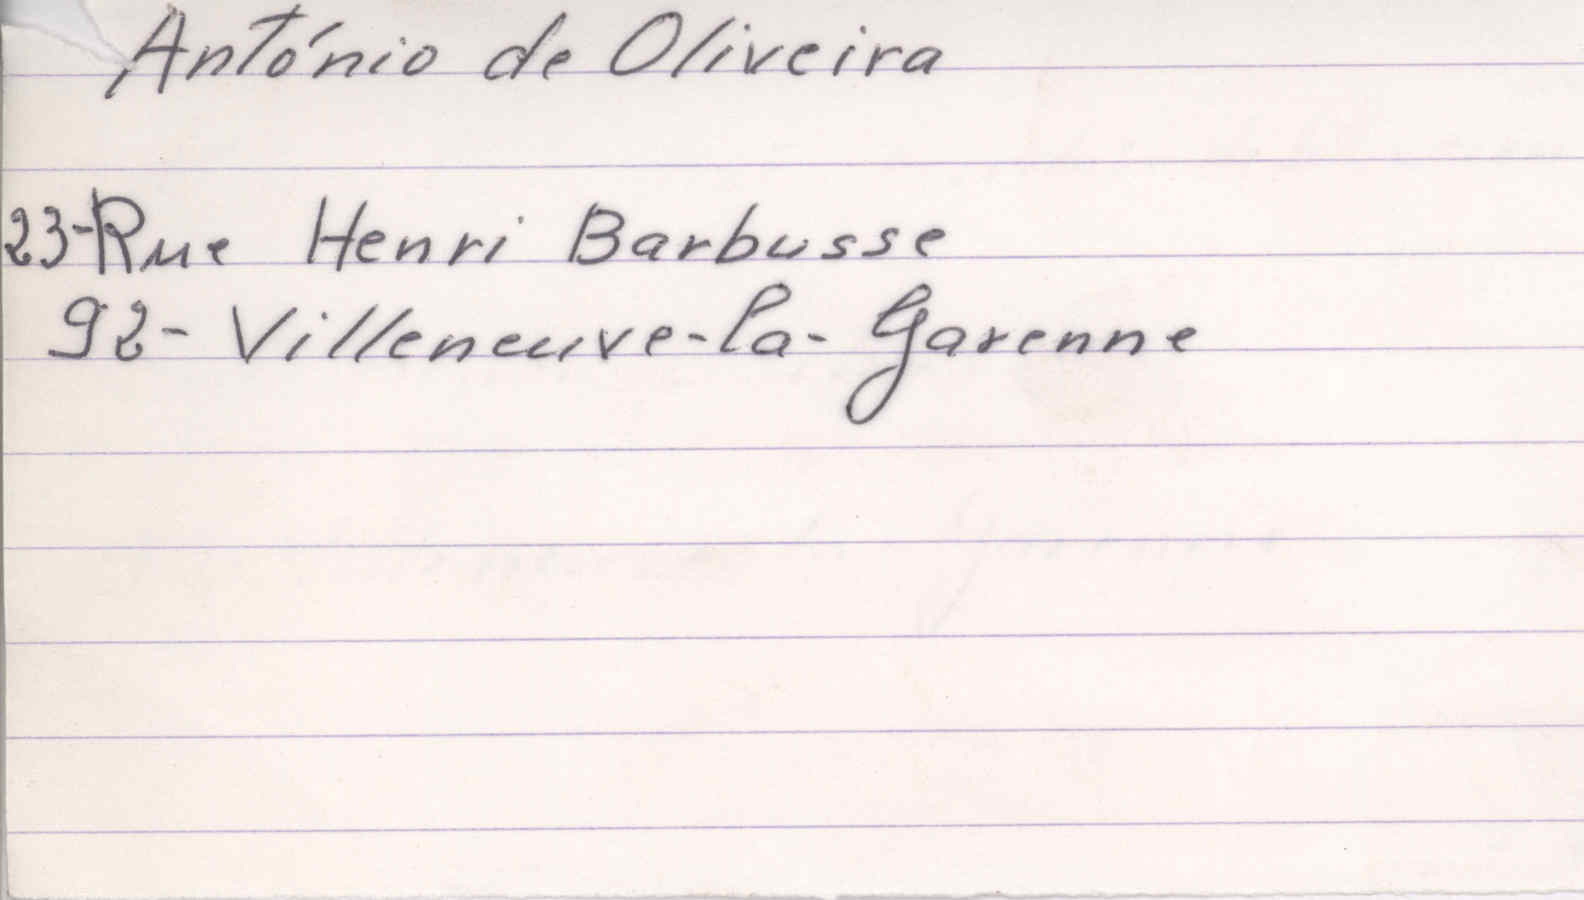 António de Oliveira
23-Rue Henri Barbusse
92- Villeneuve-la-Garenne